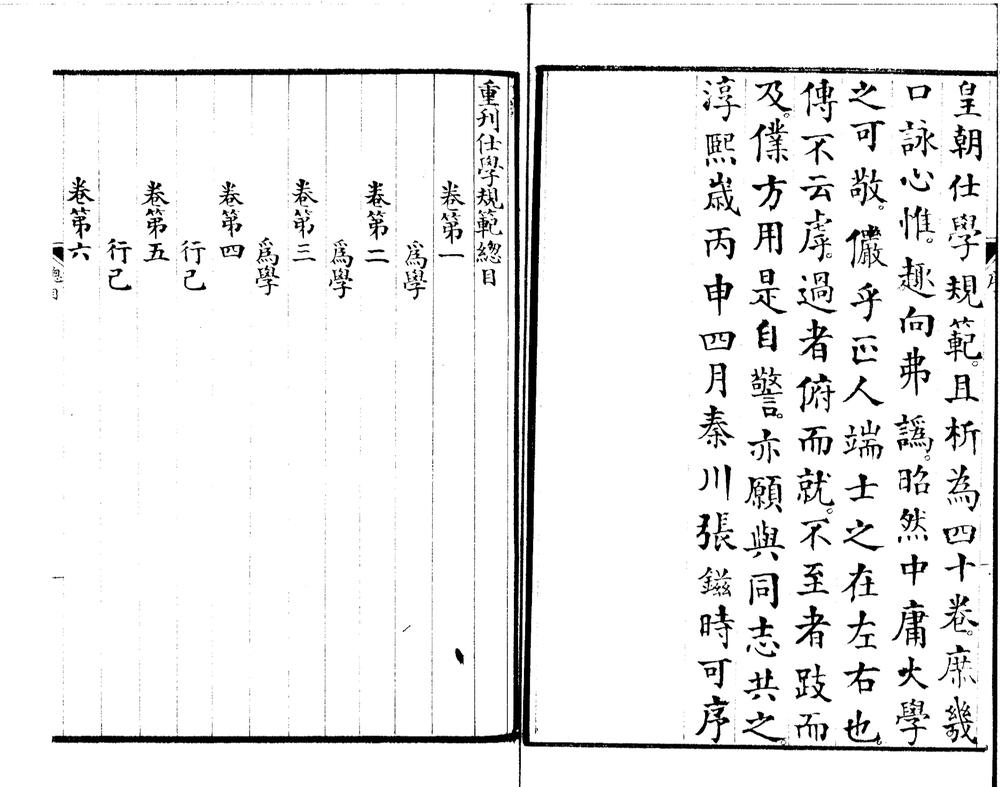 皇朝仕學規範。且析為四十卷。庶幾
口詠心惟。趣向弗譌。昭然中庸大學
之可敬。儼乎正人端士之在左右也。
傳不云虖。過者俯而就。不至者跂而
及。僕方用是自警。亦願與同志共之。
淳熙歲丙申四月秦川張鎡時可序
重刊仕學規範總目
卷第一
爲學
卷第二
爲學
卷第三
爲學
卷第四
行己
卷第五
行己
卷第六
總目